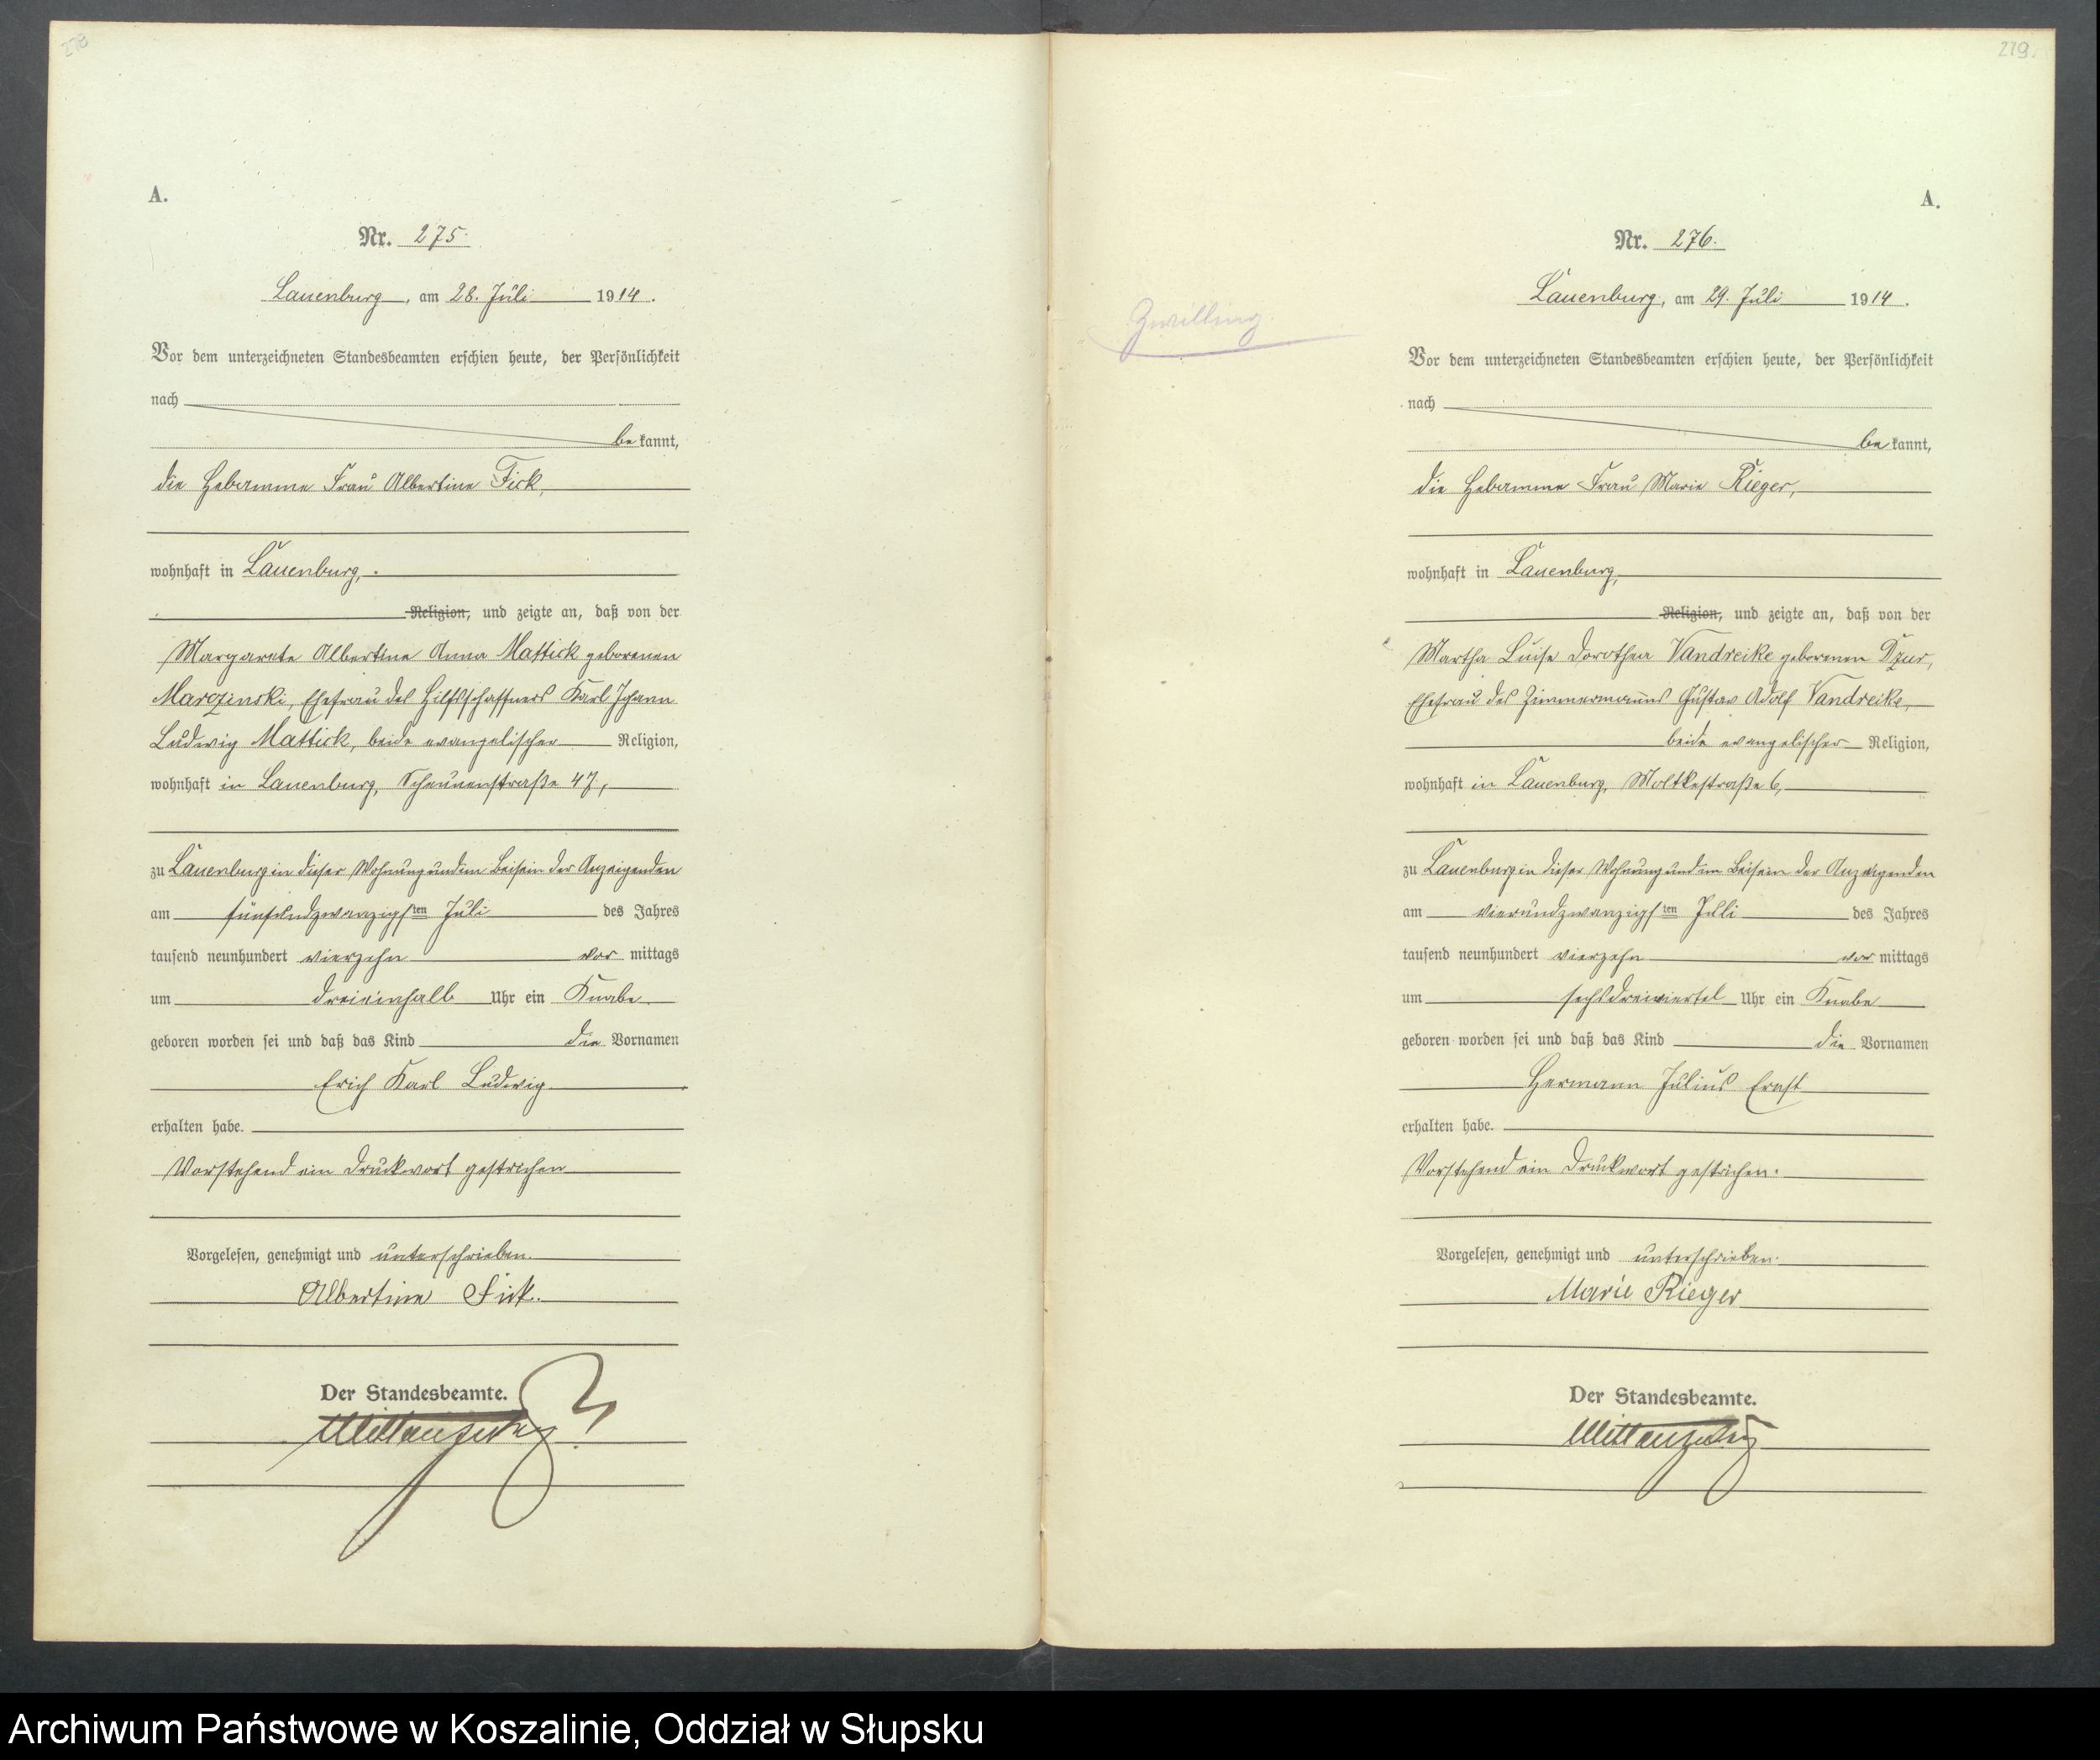 278
A.
Nr. 275.
Lauenburg, am 28. Juli 1914.
Vor dem unterzeichneten Standesbeamten erschien heute, der Persönlichkeit
nach
bekannt,
die Hebamme Frau Albertine Fick,
wohnhaft in Lauenburg,
Religion, und zeigte an, daß von der
Margarete Albertine Anna Mattick geborenen
Marczinski, Ehefrau des Hilfsschaffners Karl Johann
Ludwig Mattick, beide evangelischer Religion,
wohnhaft in Lauenburg, Scheunenstraße 47,
zu Lauenburg in dieser Wohnung und im Beisein der Anzeigenden
am fünfundzwanzigsten Juli des Jahres
tausend neunhundert vierzehn vor mittags
um dreieinhalb Uhr ein Knabe
geboren worden sei und daß das Kind die Vornamen
Erich Karl Ludwig
erhalten habe.
Vorstehend ein Druckwort gestrichen
Vorgelesen, genehmigt und unterschrieben.
Albertine Fick.
Der Standesbeamte.
279.
A.
Nr. 276.
Lauenburg, am 29. Juli 1914.
Zwilling
Vor dem unterzeichneten Standesbeamten erschien heute, der Persönlichkeit
nach
bekannt,
die Hebamme Frau Marie Rieger,
wohnhaft in Lauenburg,
Religion, und zeigte an, daß von der
Martha Luise Dorothea Vandreike geborenen Dzur,
Ehefrau des Zimmermanns Gustav Adolf Vandreike,
beide evangelischer Religion,
wohnhaft in Lauenburg, Moltkestraße 6,
zu Lauenburg in dieser Wohnung und im Beisein der Anzeigenden
am vierundzwanzigsten Juli des Jahres
tausend neunhundert vierzehn vor mittags
um sechsdreiviertel Uhr ein Knabe
geboren worden sei und daß das Kind die Vornamen
Hermann Julius Ernst
erhalten habe.
Vorstehend ein Druckwort gestrichen.
Vorgelesen, genehmigt und unterschrieben.
Marie Rieger
Der Standesbeamte.
Archiwum Państwowe w Koszalinie, Oddział w Słupsku